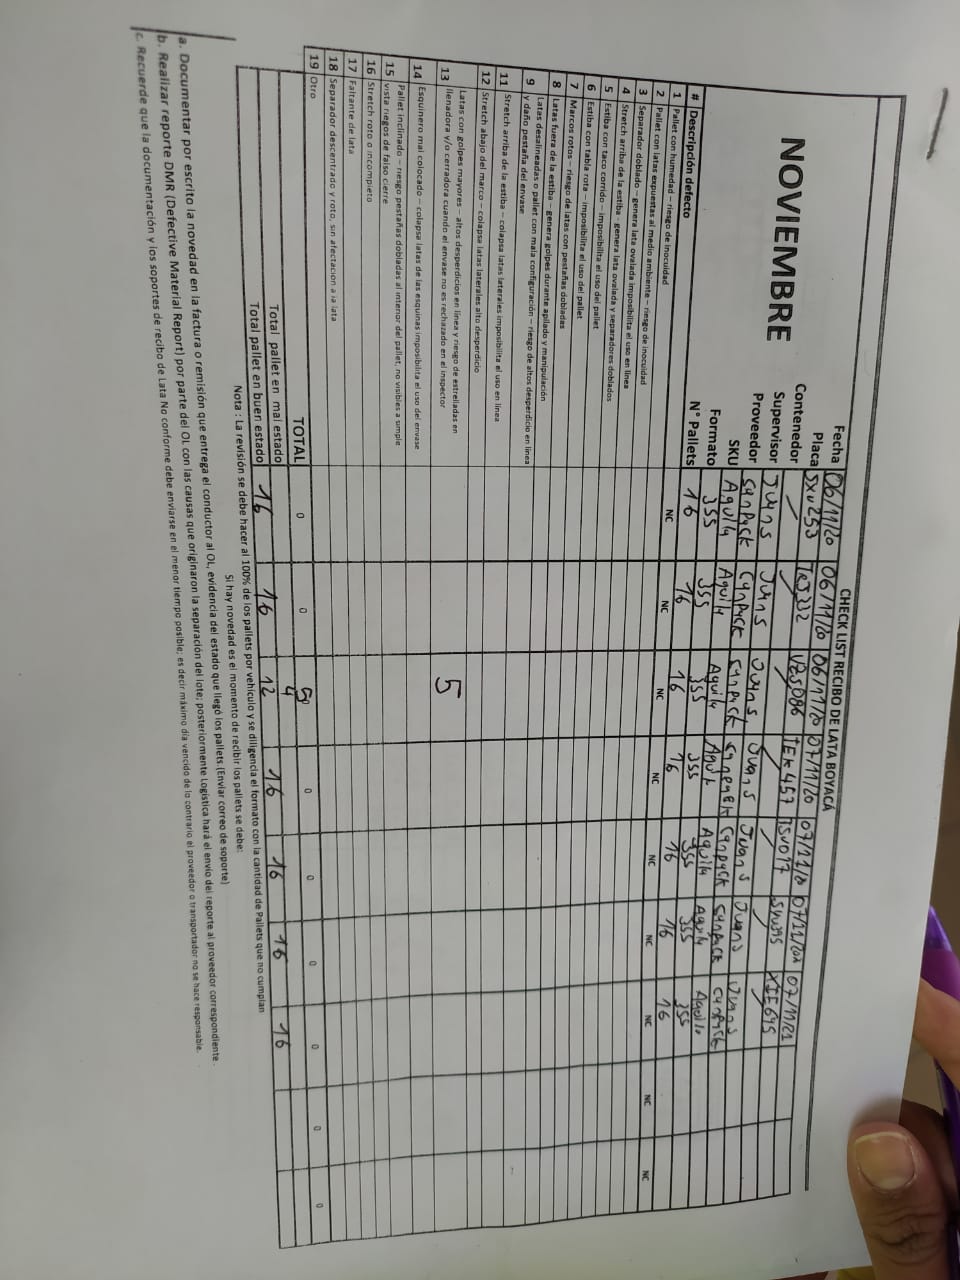 CHECK LIST RECIBO DE LATA BOYACÁ
NOVIEMBRE
Fecha 06/11/20 06/11/20 06/11/20 07/11/20 07/11/20 07/11/202 07/11/21
Placa SXU253 TRJ332 VZS086 IEK457 TSV017 XIE645
Contenedor
Supervisor Juans Juans Juans Juans Juans Juans Juans
Proveedor Canpack Canpack Canpack Canpack Canpack Canpack Canpack
SKU Aguila Aguila Aguila Aguila Aguila Aguila
Formato 355 355 355 355 355 355 355
N° Pallets 16 16 16 16 16 16 16
# Descripción defecto NC NC NC NC NC NC NC NC NC
1 Pallet con humedad – riesgo de inocuidad
2 Pallet con latas expuestas al medio ambiente – riesgo de inocuidad
3 Separador doblado – genera lata ovalada imposibilita el uso en línea
4 Stretch arriba de la estiba - genera lata ovalada y separadores doblados
5 Estiba con taco corrido – imposibilita el uso del pallet
6 Estiba con tabla rota – imposibilita el uso del pallet
7 Marcos rotos – riesgo de latas con pestañas dobladas
8 Latas fuera de la estiba – genera golpes durante apilado y manipulación
9 Latas desalineadas o pallet con mala configuración – riesgo de altos desperdicio en línea
y daño pestaña del envase
11 Stretch arriba de la estiba – colapsa latas laterales imposibilita el uso en línea
12 Stretch abajo del marco – colapsa latas laterales alto desperdicio
13 Latas con golpes mayores – altos desperdicios en línea y riesgo de estrelladas en
llenadora y/o cerradora cuando el envase no es rechazado en el inspector 5
14 Esquinero mal colocado – colapsa latas de las esquinas imposibilita el uso del envase
15 Pallet inclinado – riesgo pestañas dobladas al interior del pallet, no visibles a simple
vista riegos de falso cierre
16 Stretch roto o incompleto
17 Faltante de lata
18 Separador descentrado y roto, sin afectacion a la lata
19 Otro
TOTAL 0 0 5 0 0 0 0 0 0
Total pallet en mal estado 4
Total pallet en buen estado 16 16 12 16 16 16 16
Nota : La revisión se debe hacer al 100% de los pallets por vehículo y se diligencia el formato con la cantidad de Pallets que no cumplan
Si hay novedad es el momento de recibir los pallets se debe:
a. Documentar por escrito la novedad en la factura o remisión que entrega el conductor al OL, evidencia del estado que llegó los pallets.(Enviar correo de soporte)
b. Realizar reporte DMR (Defective Material Report) por parte del OL con las causas que originaron la separación del lote; posteriormente Logística hará el envío del reporte al proveedor correspondiente.
c. Recuerde que la documentación y los soportes de recibo de Lata No conforme debe enviarse en el menor tiempo posible; es decir máximo día vencido de lo contrario el proveedor o transportador no se hace responsable.